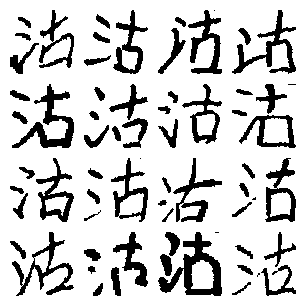 沽沽沽沽
沽沽沽沽
沽沽沽沽
沽沽沽沽